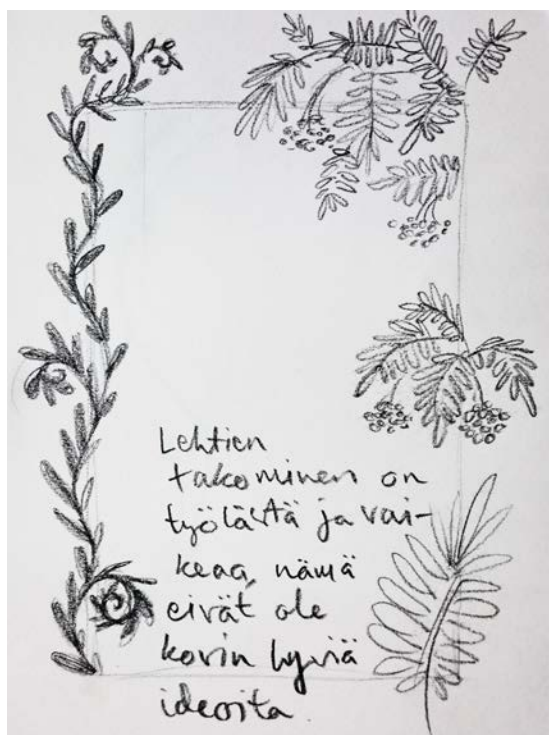 Lehtien
takominen on
työlästä ja vai-
keaa, nämä
eivät ole
kovin hyviä
ideoita.